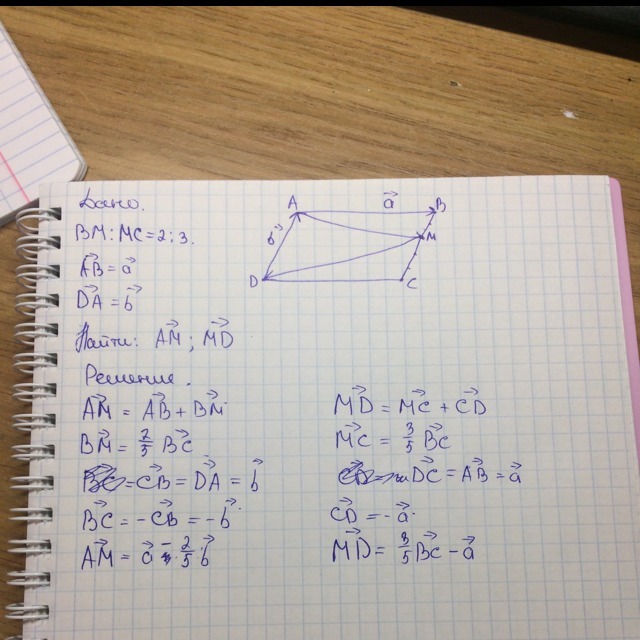 Дано.
BM : MC = 2 : 3.
AB⃗ = a⃗
DA⃗ = b⃗
Найти: AM⃗ ; MD⃗
A a⃗ B
b⃗ M
D C
Решение.
AM⃗ = AB⃗ + BM⃗
BM⃗ = 2/5 BC⃗
= CB⃗ = DA⃗ = b⃗
BC⃗ = -CB⃗ = -b⃗
AM⃗ = a⃗ - 2/5 b⃗
MD⃗ = MC⃗ + CD⃗
MC⃗ = 3/5 BC⃗
DC⃗ = AB⃗ = a⃗
CD⃗ = -a⃗
MD⃗ = 3/5 BC⃗ - a⃗